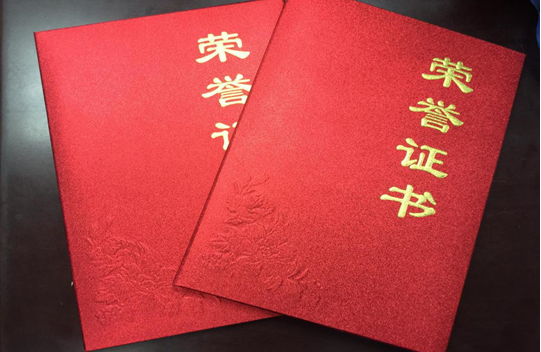 荣誉证
荣誉证书